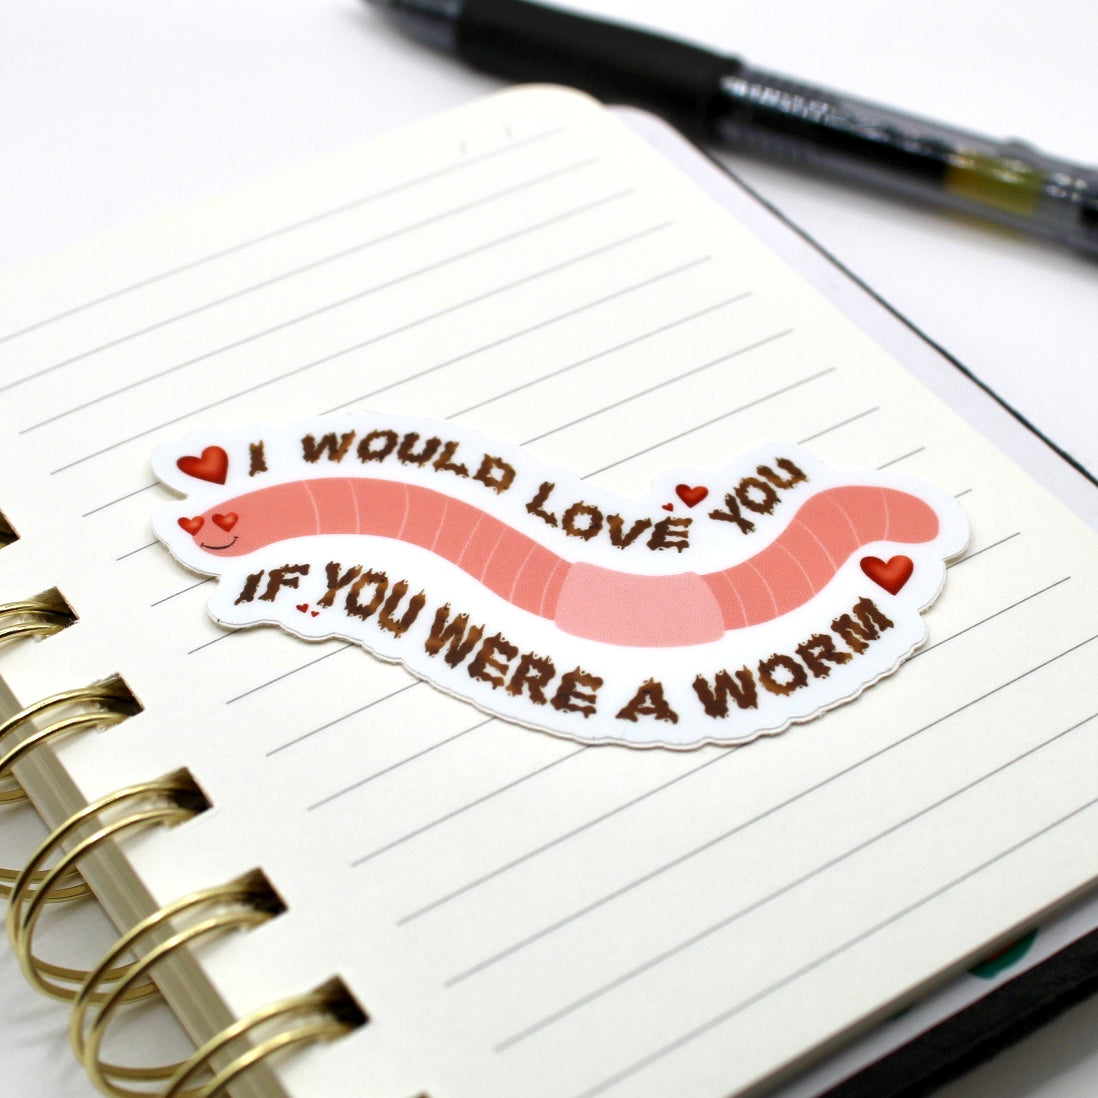 I WOULD LOVE YOU
IF YOU WERE A WORM